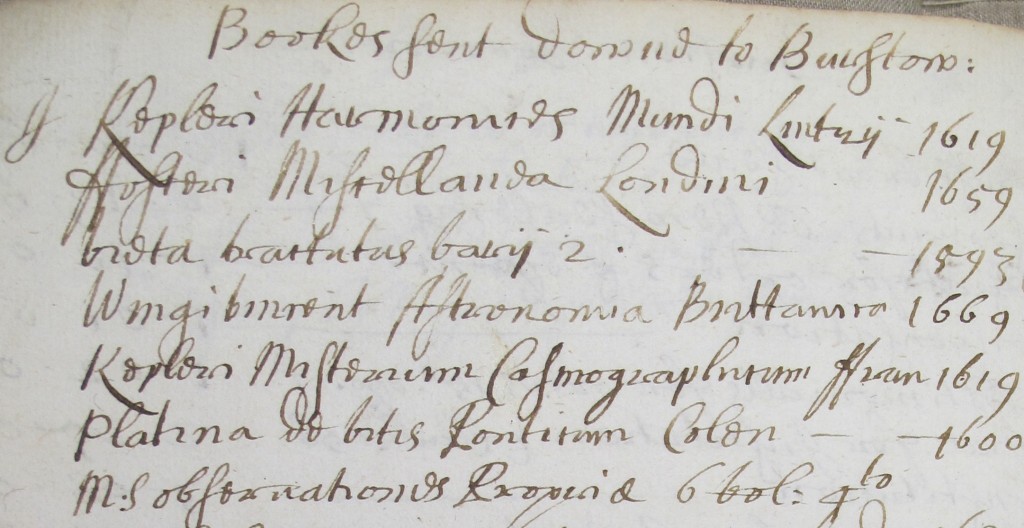 Bookes sent downe to Burstow:
Kepleri Harmonices Mundi Lintzij 1619
ffosteri Miscellanea Londini 1659
vieta tractatus varij 2. — — 1593
Wing Vincent Astronomia Brittanica 1669
Kepleri Misterium Cosmographicum ffran 1619
Platina de vitis Pontificum Colen — — 1600
M:S observationes Propriæ 6 vol: 4to